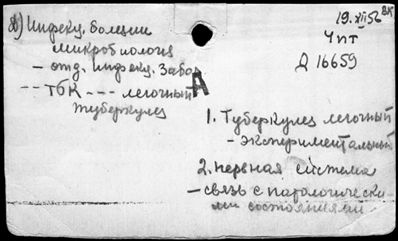 19.XII 52 вк
а) Инфекц. болезни
Чпт
микробиология
Д 16659
- отд. инфекц. Забол
А
-- ТБК --- легочный
туберкулез
1. Туберкулез легочный
- экспериментальный
2. Нервная система
- связь с патологически-
ми состояниями